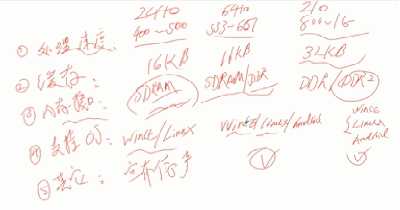 2440 6410 210
400~500 533-667 800~1G
① 处理速度:
② 缓存: 16KB 16KB 32KB
③ 内存接口: SDRAM SDRAM/DDR DDR/DDR2
④ 支持OS: WinCE/Linux WinCE/Linux/Android WinCE
Linux
Android
⑤ 其它: